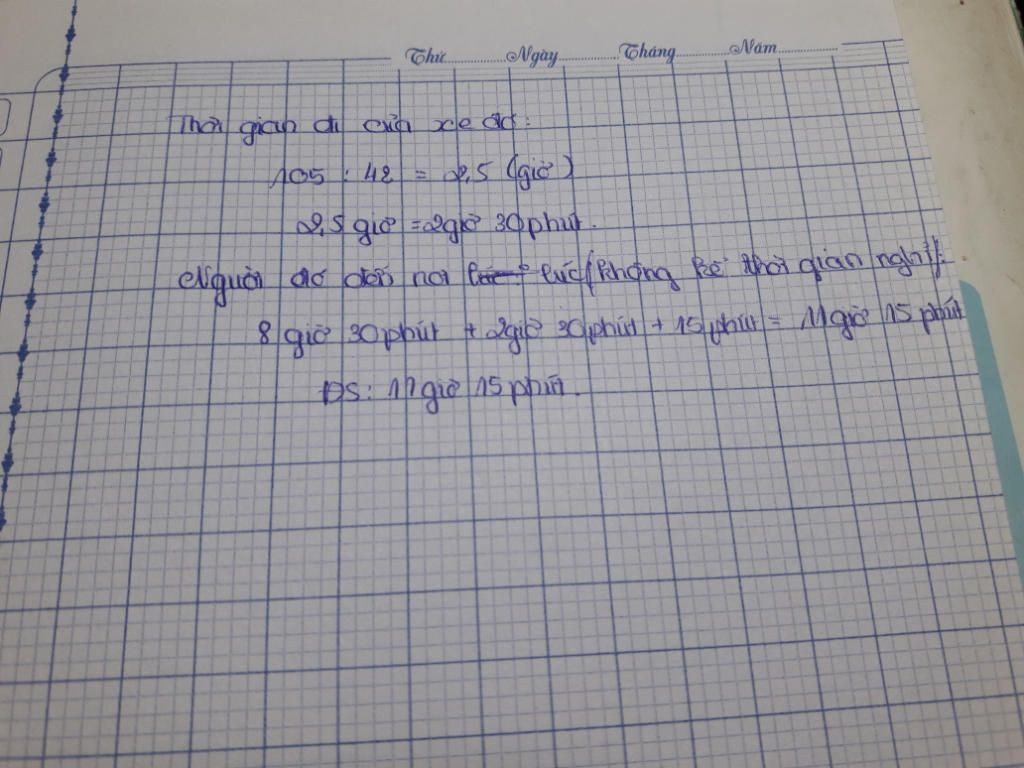 Thứ Ngày Tháng Năm
Thời gian đi của xe đó:
105 : 42 = 2,5 (giờ)
2,5 giờ = 2giờ 30phút.
Người đó đến nơi lúc (không kể thời gian nghỉ):
8 giờ 30phút + 2giờ 30phút + 15phút = 11giờ 15phút
ĐS: 11giờ 15phút.